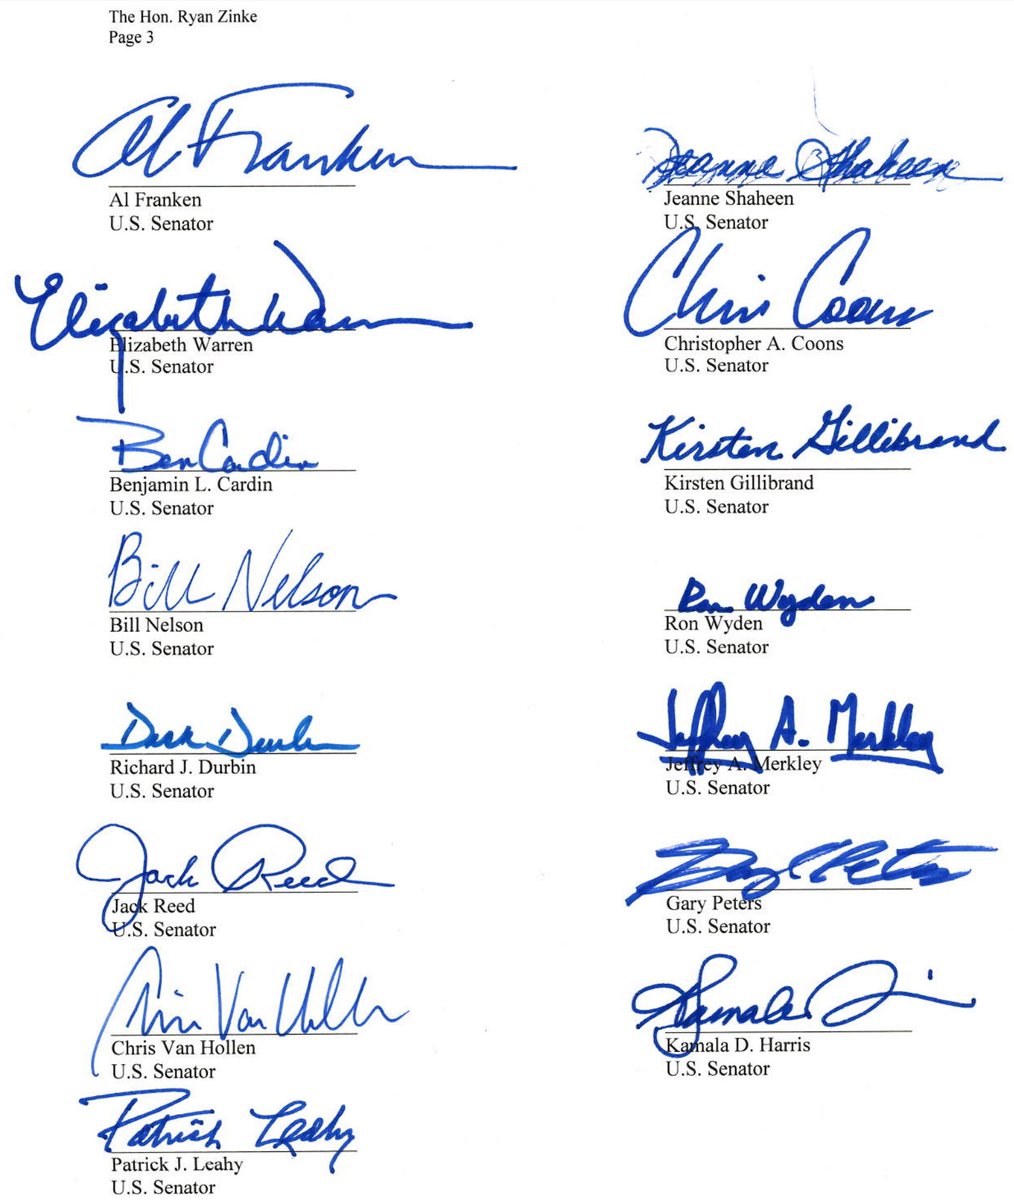 The Hon. Ryan Zinke
Page 3
Al Franken
Al Franken
U.S. Senator
Jeanne Shaheen
Jeanne Shaheen
U.S. Senator
Elizabeth Warren
Elizabeth Warren
U.S. Senator
Chris Coons
Christopher A. Coons
U.S. Senator
Ben Cardin
Benjamin L. Cardin
U.S. Senator
Kirsten Gillibrand
Kirsten Gillibrand
U.S. Senator
Bill Nelson
Bill Nelson
U.S. Senator
Ron Wyden
Ron Wyden
U.S. Senator
Dick Durbin
Richard J. Durbin
U.S. Senator
Jeffrey A. Merkley
Jeffrey A. Merkley
U.S. Senator
Jack Reed
Jack Reed
U.S. Senator
Gary Peters
Gary Peters
U.S. Senator
Chris Van Hollen
Chris Van Hollen
U.S. Senator
Kamala
Kamala D. Harris
U.S. Senator
Patrick Leahy
Patrick J. Leahy
U.S. Senator